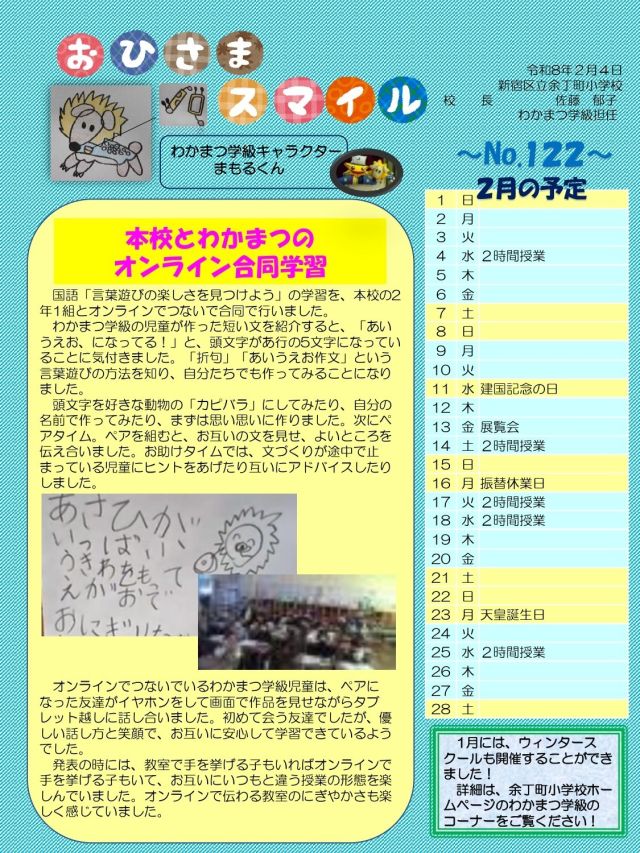 おひさま
スマイル
令和8年2月4日
新宿区立余丁町小学校
校　長　佐藤　郁子
わかまつ学級担任
わかまつ学級キャラクター
まもるくん
～No.122～
2月の予定
1 日
2 月
3 火
4 水 2時間授業
5 木
6 金
7 土
8 日
9 月
10 火
11 水 建国記念の日
12 木
13 金 展覧会
14 土 2時間授業
15 日
16 月 振替休業日
17 火 2時間授業
18 水 2時間授業
19 木
20 金
21 土
22 日
23 月 天皇誕生日
24 火
25 水 2時間授業
26 木
27 金
28 土
本校とわかまつの
オンライン合同学習
国語「言葉遊びの楽しさを見つけよう」の学習を、本校の2
年1組とオンラインでつないで合同で行いました。
わかまつ学級の児童が作った短い文を紹介すると、「あい
うえお、になってる！」と、頭文字があ行の5文字になってい
ることに気付きました。「折句」「あいうえお作文」という
言葉遊びの方法を知り、自分たちでも作ってみることになり
ました。
頭文字を好きな動物の「カピバラ」にしてみたり、自分の
名前で作ってみたり、まずは思い思いに作りました。次にペ
アタイム。ペアを組むと、お互いの文を見せ、よいところを
伝え合いました。お助けタイムでは、文づくりが途中で止
まっている児童にヒントをあげたり互いにアドバイスしたり
しました。
あさひが
いっぱい、
うきわをもって
えがおで
おにぎり
オンラインでつないでいるわかまつ学級児童は、ペアに
なった友達がイヤホンをして画面で作品を見せながらタブ
レット越しに話し合いました。初めて会う友達でしたが、優
しい話し方と笑顔で、お互いに安心して学習できているよう
でした。
発表の時には、教室で手を挙げる子もいればオンラインで
手を挙げる子もいて、お互いにいつもと違う授業の形態を楽
しんでいました。オンラインで伝わる教室のにぎやかさも楽
しく感じていました。
1月には、ウィンタース
クールも開催することができ
ました！
詳細は、余丁町小学校ホー
ムページのわかまつ学級の
コーナーをご覧ください！